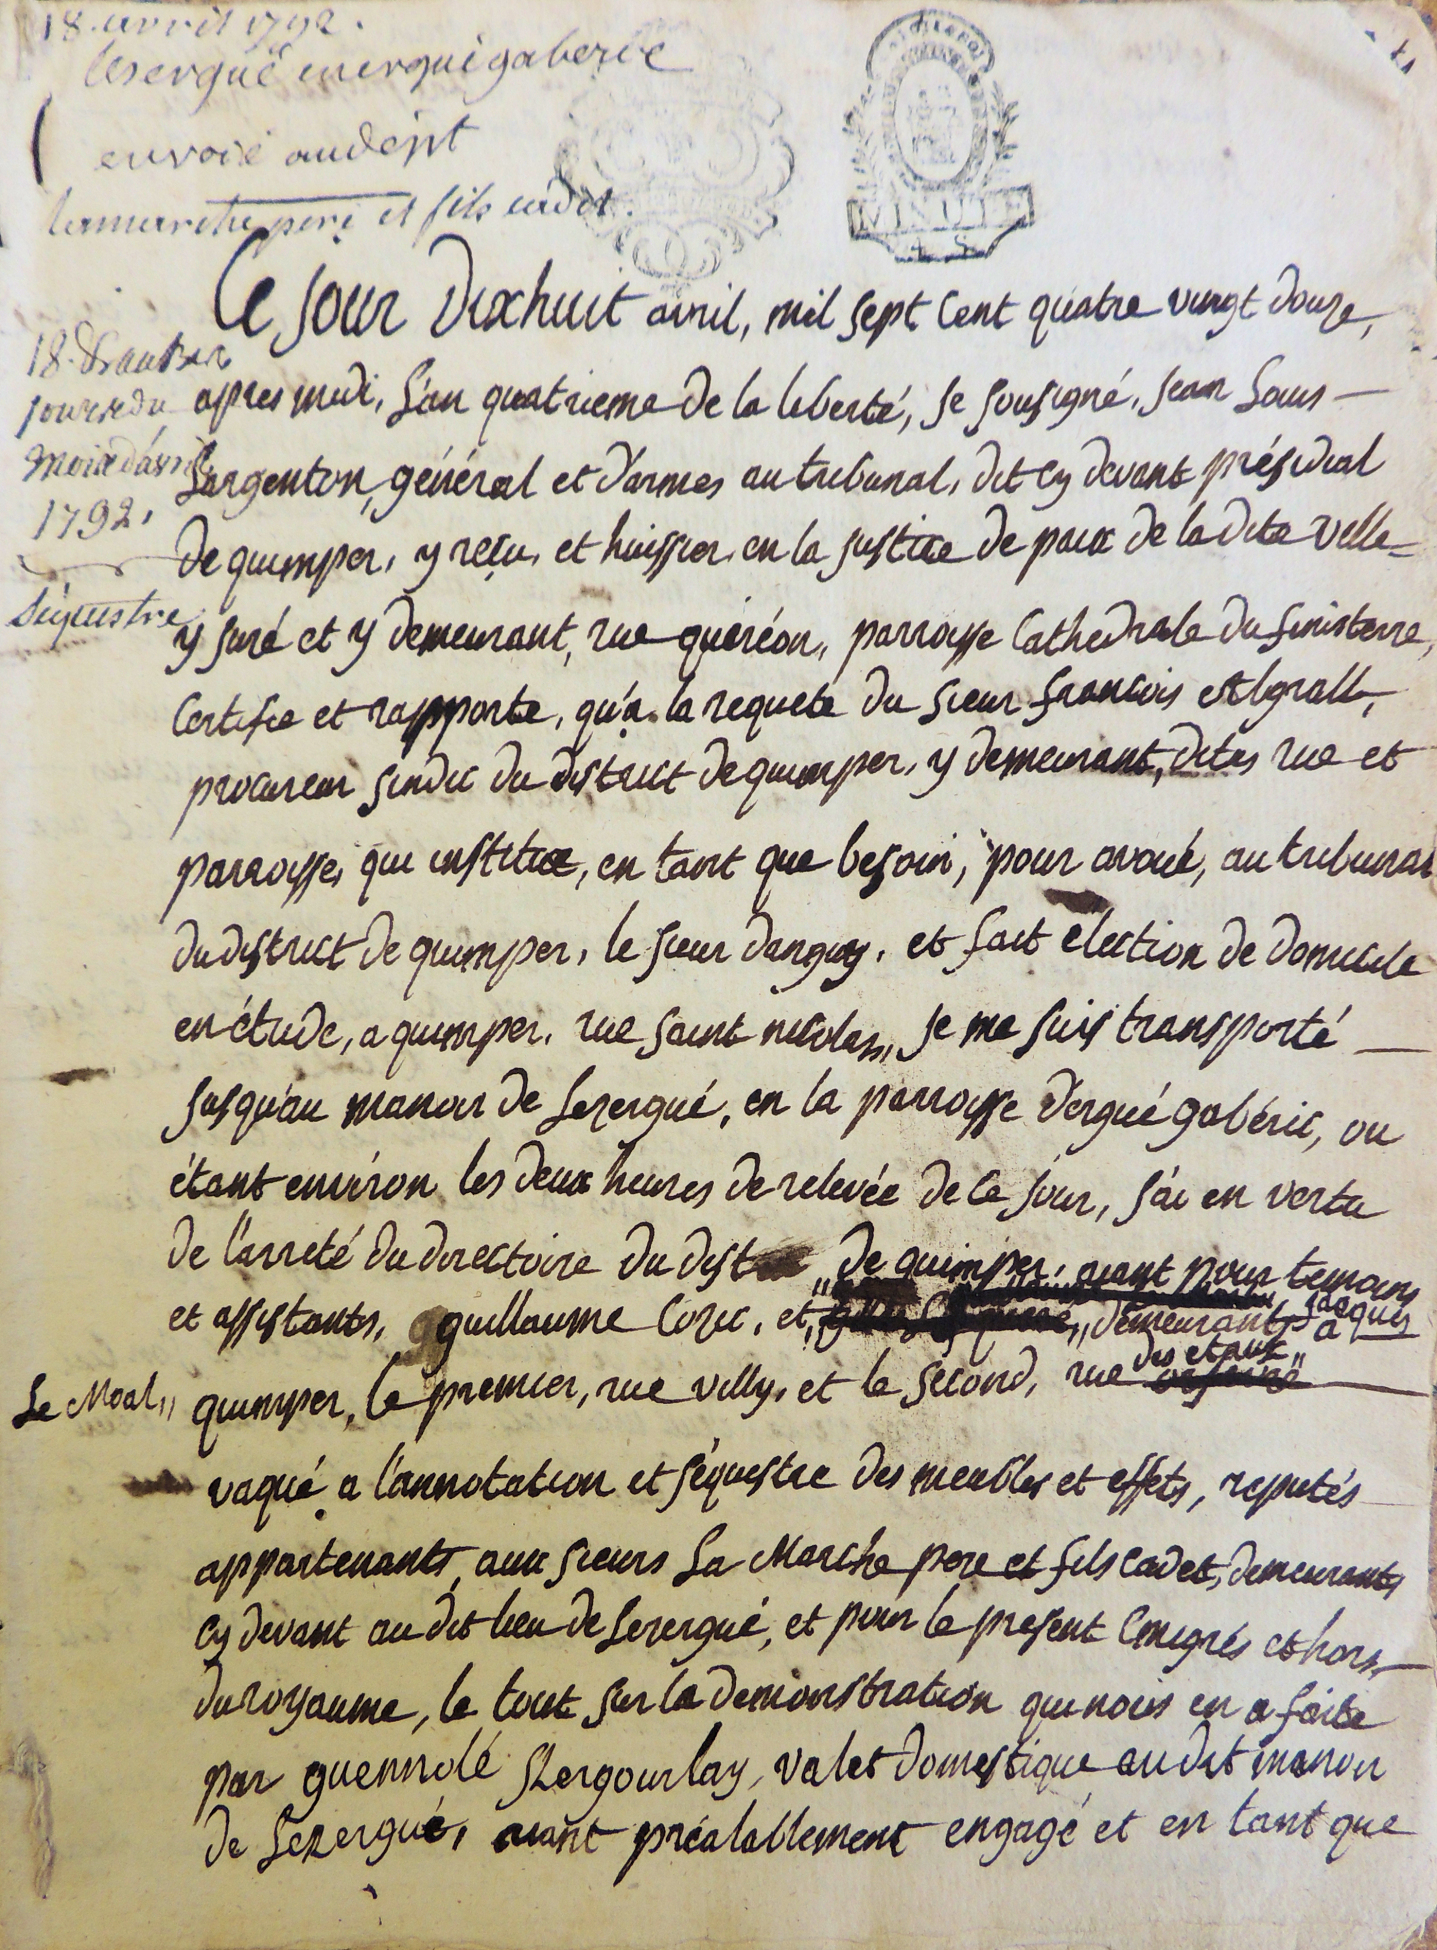 18. avril 1792.
lesergué en ergué gaberic
envoié au dépt
lamarche pere et fils cadet.
LA LOI ET LE ROI
MINUTE
4 S
Ce jour dixhuit avril, mil sept cent quatre vingt douze,
18.
jour du
mois d'avril
1792,
Séquestre
apres midi, l'an quatrieme de la liberté, je sousigné, jean Louis
Largenton, général et d'armes au tribunal, dit cy devant présidial
de quimper, y reçu, et huissier en la justice de paix de la dite ville
y juré et y demeurant, rue quéréon, parroisse Cathedrale du finisterre,
Certifie et rapporte, qu'a la requete du sieur françois Algrall,
procureur sindic du district de quimper, y demeurant, dites rue et
parroisse, qui institue, en tant que besoin, pour avoué, au tribunal
du district de quimper, le sieur danguy, et fait election de domicile
en étude, a quimper, rue saint nicolas, je me suis transporté
jusqu'au manoir de Lezergué, en la parroisse d'ergué gabéric, ou
étant environ les deux heures de relevée de ce jour, j'ai en vertu
de l'arreté du directoire du dist de quimper, aiant pour temoins
et assistants, guillaume Cozic, et, demeurants a jacques
Le Moal,, quimper, le premier, rue villy, et le second, rue des etaux
vaqué a l'annotation et séquestre des meubles et effets, reputés
appartenants aux sieurs La Marche pere et fils cadet, demeurants
cy devant au dit lieu de Lezergué, et pour le present emigrés et hors
du royaume, le tout sur la demonstration qui nous en a faite
par guennolé Kergourlay, valet domestique au dit manoir
de Lezergué, aiant préalablement engagé et en tant que